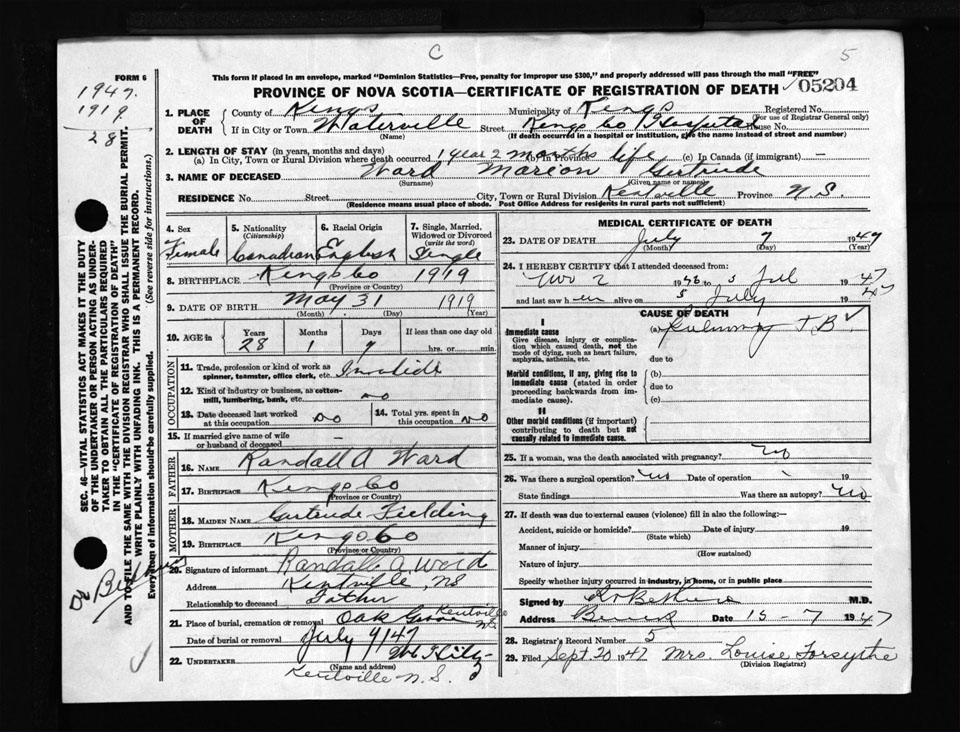 C
5
FORM 6
This form if placed in an envelope, marked "Dominion Statistics—Free, penalty for improper use $300," and properly addressed will pass through the mail "FREE"
1947.
1919
28
PROVINCE OF NOVA SCOTIA—CERTIFICATE OF REGISTRATION OF DEATH
05204
1. PLACE OF DEATH
County of Kings Municipality of Kings Registered No.
(For use of Registrar General only)
If in City or Town Waterville Street Kings Co Hospital House No.
(Name) (If death occurred in a hospital or institution, give the name instead of street and number)
2. LENGTH OF STAY (in years, months and days)
(a) In City, Town or Rural Division where death occurred 1 year 2 months (b) In Province life (c) In Canada (if immigrant) —
3. NAME OF DECEASED Ward Marion Gertrude
(Surname) (Given name or names)
RESIDENCE No. Street City, Town or Rural Division Kentville Province N.S.
(Residence means usual place of abode. Post Office Address for residents in rural parts not sufficient)
SEC. 46—VITAL STATISTICS ACT MAKES IT THE DUTY
OF THE UNDERTAKER OR PERSON ACTING AS UNDER-
TAKER TO OBTAIN ALL THE PARTICULARS REQUIRED
IN THE "CERTIFICATE OF REGISTRATION OF DEATH"
AND TO FILE THE SAME WITH THE DIVISION REGISTRAR WHO SHALL ISSUE THE BURIAL PERMIT.
WRITE PLAINLY WITH UNFADING INK. THIS IS A PERMANENT RECORD.
Every item of information should be carefully supplied. (See reverse side for instructions.)
4. Sex
Female
5. Nationality
(Citizenship)
Canadian
6. Racial Origin
English
7. Single, Married,
Widowed or Divorced
(write the word)
Single
8. BIRTHPLACE Kings Co 1919
(Province or Country)
9. DATE OF BIRTH May 31 1919
(Month) (Day) (Year)
10. AGE in Years Months Days If less than one day old
28 1 7 hrs. or min.
OCCUPATION
11. Trade, profession or kind of work as
spinner, teamster, office clerk, etc. Invalide
12. Kind of industry or business, as cotton-
mill, lumbering, bank, etc. no
13. Date deceased last worked
at this occupation no
14. Total yrs. spent in
this occupation no
15. If married give name of wife
or husband of deceased —
FATHER
16. NAME Randall A Ward
17. BIRTHPLACE Kings Co
(Province or Country)
MOTHER
18. MAIDEN NAME Gertrude Fielding
19. BIRTHPLACE Kings Co
(Province or Country)
20. Signature of informant Randall A Ward
Address Kentville, NS
Relationship to deceased Father
21. Place of burial, cremation or removal Oak Grove Kentville NS
Date of burial or removal July 9/47
22. UNDERTAKER
(Name and address)
Kentville N.S.
MEDICAL CERTIFICATE OF DEATH
23. DATE OF DEATH July 7 1947
(Month) (Day) (Year)
24. I HEREBY CERTIFY that I attended deceased from:
Nov 2 1946 to 5 Jul 1947
and last saw h er alive on 5 July 1947
CAUSE OF DEATH
I
Immediate cause
Give disease, injury or complica-
tion which caused death, not the
mode of dying, such as heart failure,
asphyxia, asthenia, etc.
(a) Pulmonary T.B.
due to
Morbid conditions, if any, giving rise to
immediate cause (stated in order
proceeding backwards from im-
mediate cause).
(b)
due to
(c)
II
Other morbid conditions (if important)
contributing to death but not
causally related to immediate cause.
25. If a woman, was the death associated with pregnancy? no
26. Was there a surgical operation? no Date of operation 19
State findings Was there an autopsy? no
27. If death was due to external causes (violence) fill in also the following:—
Accident, suicide or homicide? Date of injury 19
(State which)
Manner of injury
(How sustained)
Nature of injury
Specify whether injury occurred in industry, in home, or in public place
Signed by M.D.
Address Berwick Date 15-7 1947
28. Registrar's Record Number 5
29. Filed Sept. 20 1947 Mrs. Louise Forsythe
(Division Registrar)